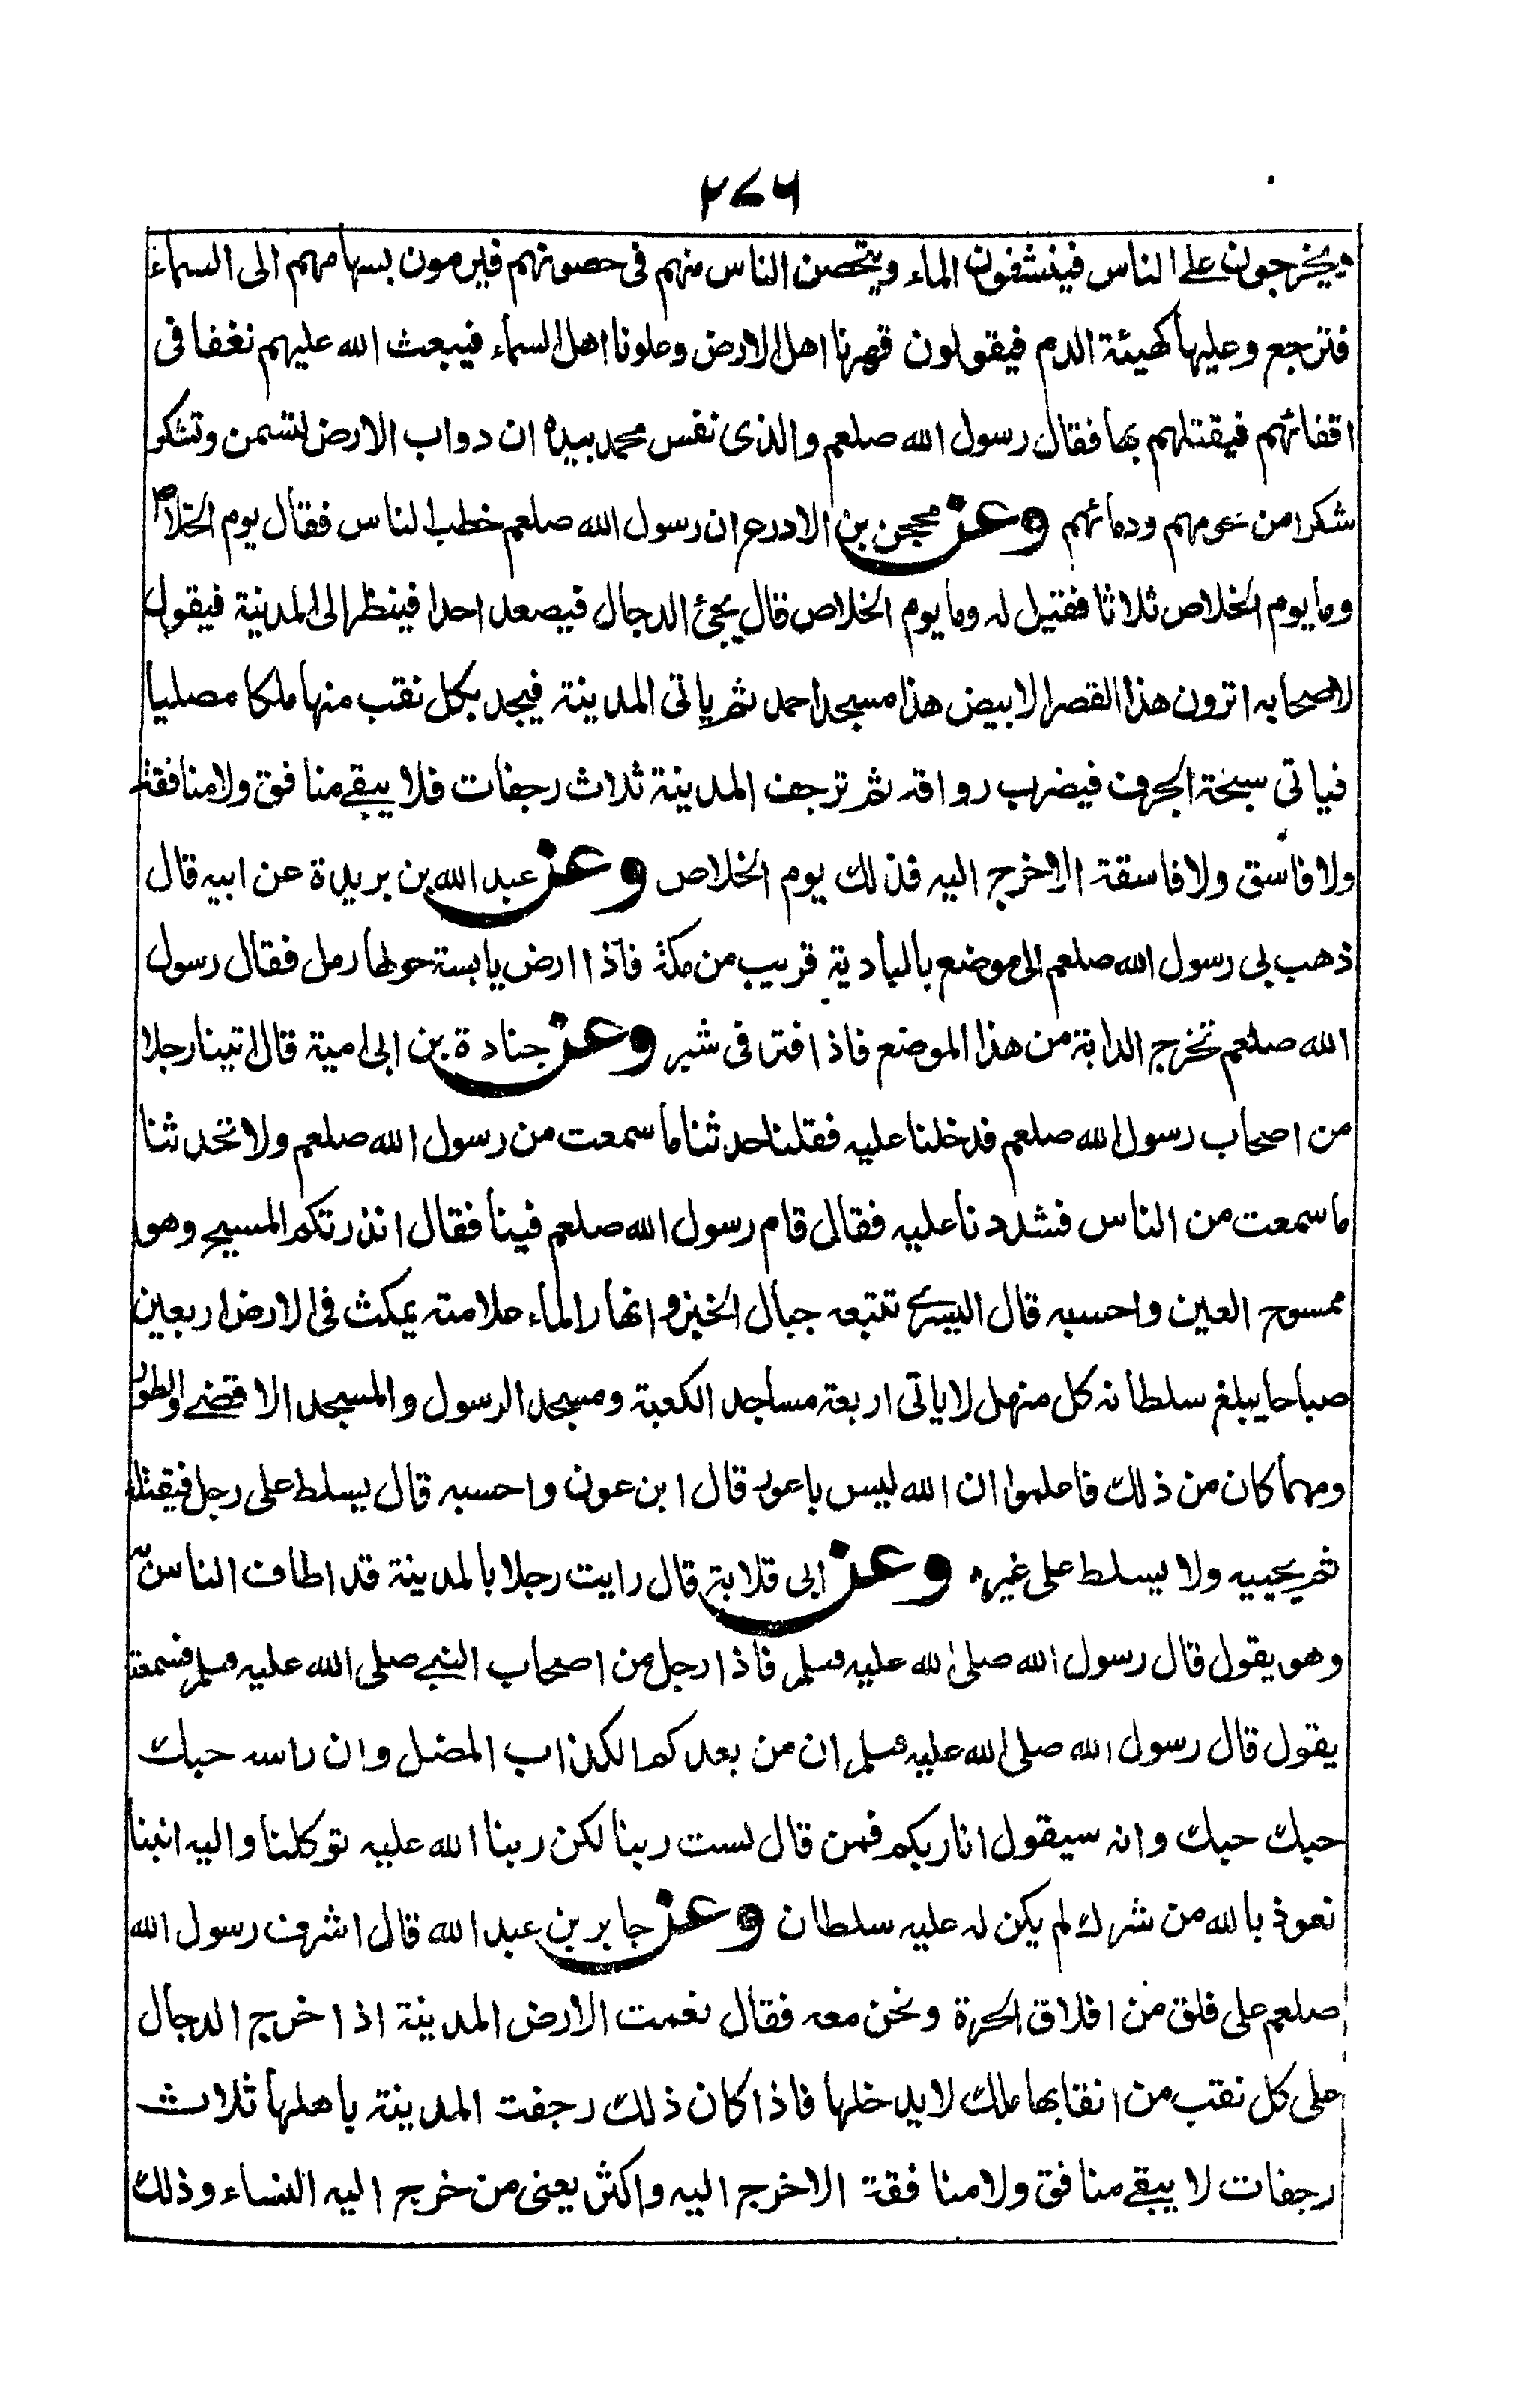 ٢٧٦
ويخرجون على الناس فينشفون الماء ويتحصن الناس منهم فى حصونهم فيرمون بسهامهم الى السماء
فترجع وعليها كهيئة الدم فيقولون قهرنا اهل الارض وعلونا اهل السماء فيبعث الله عليهم نغفا فى
اقفائهم فيقتلهم بها فقال رسول الله صلعم والذى نفس محمد بيده ان دواب الارض لتسمن وتشكر
شكرا من لحومهم ودمائهم وعن محجن بن الادرع ان رسول الله صلعم خطب الناس فقال يوم الخلاص
وما يوم الخلاص ثلاثا فقيل له وما يوم الخلاص قال يجئ الدجال فيصعد احدا فينظر الى المدينة فيقول
لاصحابه اترون هذا القصر الابيض هذا مسجد احمد ثم ياتى المدينة فيجد بكل نقب منها ملكا مصليا
فياتى سبخة الجرف فيضرب رواقه ثم ترجف المدينة ثلاث رجفات فلا يبقے منافق ولا منافقة
ولا فاسق ولا فاسقة الا خرج اليه فذلك يوم الخلاص وعن عبد الله بن بريدة عن ابيه قال
ذهب بى رسول الله صلعم الى موضع بالبادية قريب من مكة فاذا ارض يابسة حولها رمل فقال رسول
الله صلعم تخرج الدابة من هذا الموضع فاذا فتر فى شبر وعن جنادة بن ابى امية قال اتينا رجلا
من اصحاب رسول الله صلعم فدخلنا عليه فقلنا حدثنا ما سمعت من رسول الله صلعم ولا تحدثنا
ما سمعت من الناس فشددنا عليه فقال قام رسول الله صلعم فينا فقال انذرتكم المسيح وهو
ممسوح العين واحسبه قال اليسرى تتبعه جبال الخبز وانهار الماء علامته يمكث فى الارض اربعين
صباحا يبلغ سلطانه كل منهل لا ياتى اربعة مساجد الكعبة ومسجد الرسول والمسجد الاقصے والطور
ومهما كان من ذلك فاعلموا ان الله ليس باعور قال ابن عون واحسبه قال يسلط على رجل فيقتله
ثم يحييه ولا يسلط على غيره وعن ابى قلابة قال رايت رجلا بالمدينة قد اطاف الناس به
وهو يقول قال رسول الله صلى الله عليه وسلم فاذا رجل من اصحاب النبے صلى الله عليه وسلم فسمعته
يقول قال رسول الله صلى الله عليه وسلم ان من بعدكم الكذاب المضل وان راسه حبك
حبك حبك وانه سيقول انا ربكم فمن قال لست ربنا لكن ربنا الله عليه توكلنا واليه انبنا
نعوذ بالله من شرك لم يكن له عليه سلطان وعن جابر بن عبد الله قال اشرف رسول الله
صلعم على فلق من افلاق الحرة ونحن معه فقال نعمت الارض المدينة اذا خرج الدجال
على كل نقب من انقابها ملك لا يدخلها فاذا كان ذلك رجفت المدينة باهلها ثلاث
رجفات لا يبقے منافق ولا منافقة الا خرج اليه واكثر يعنى من خرج اليه النساء وذلك